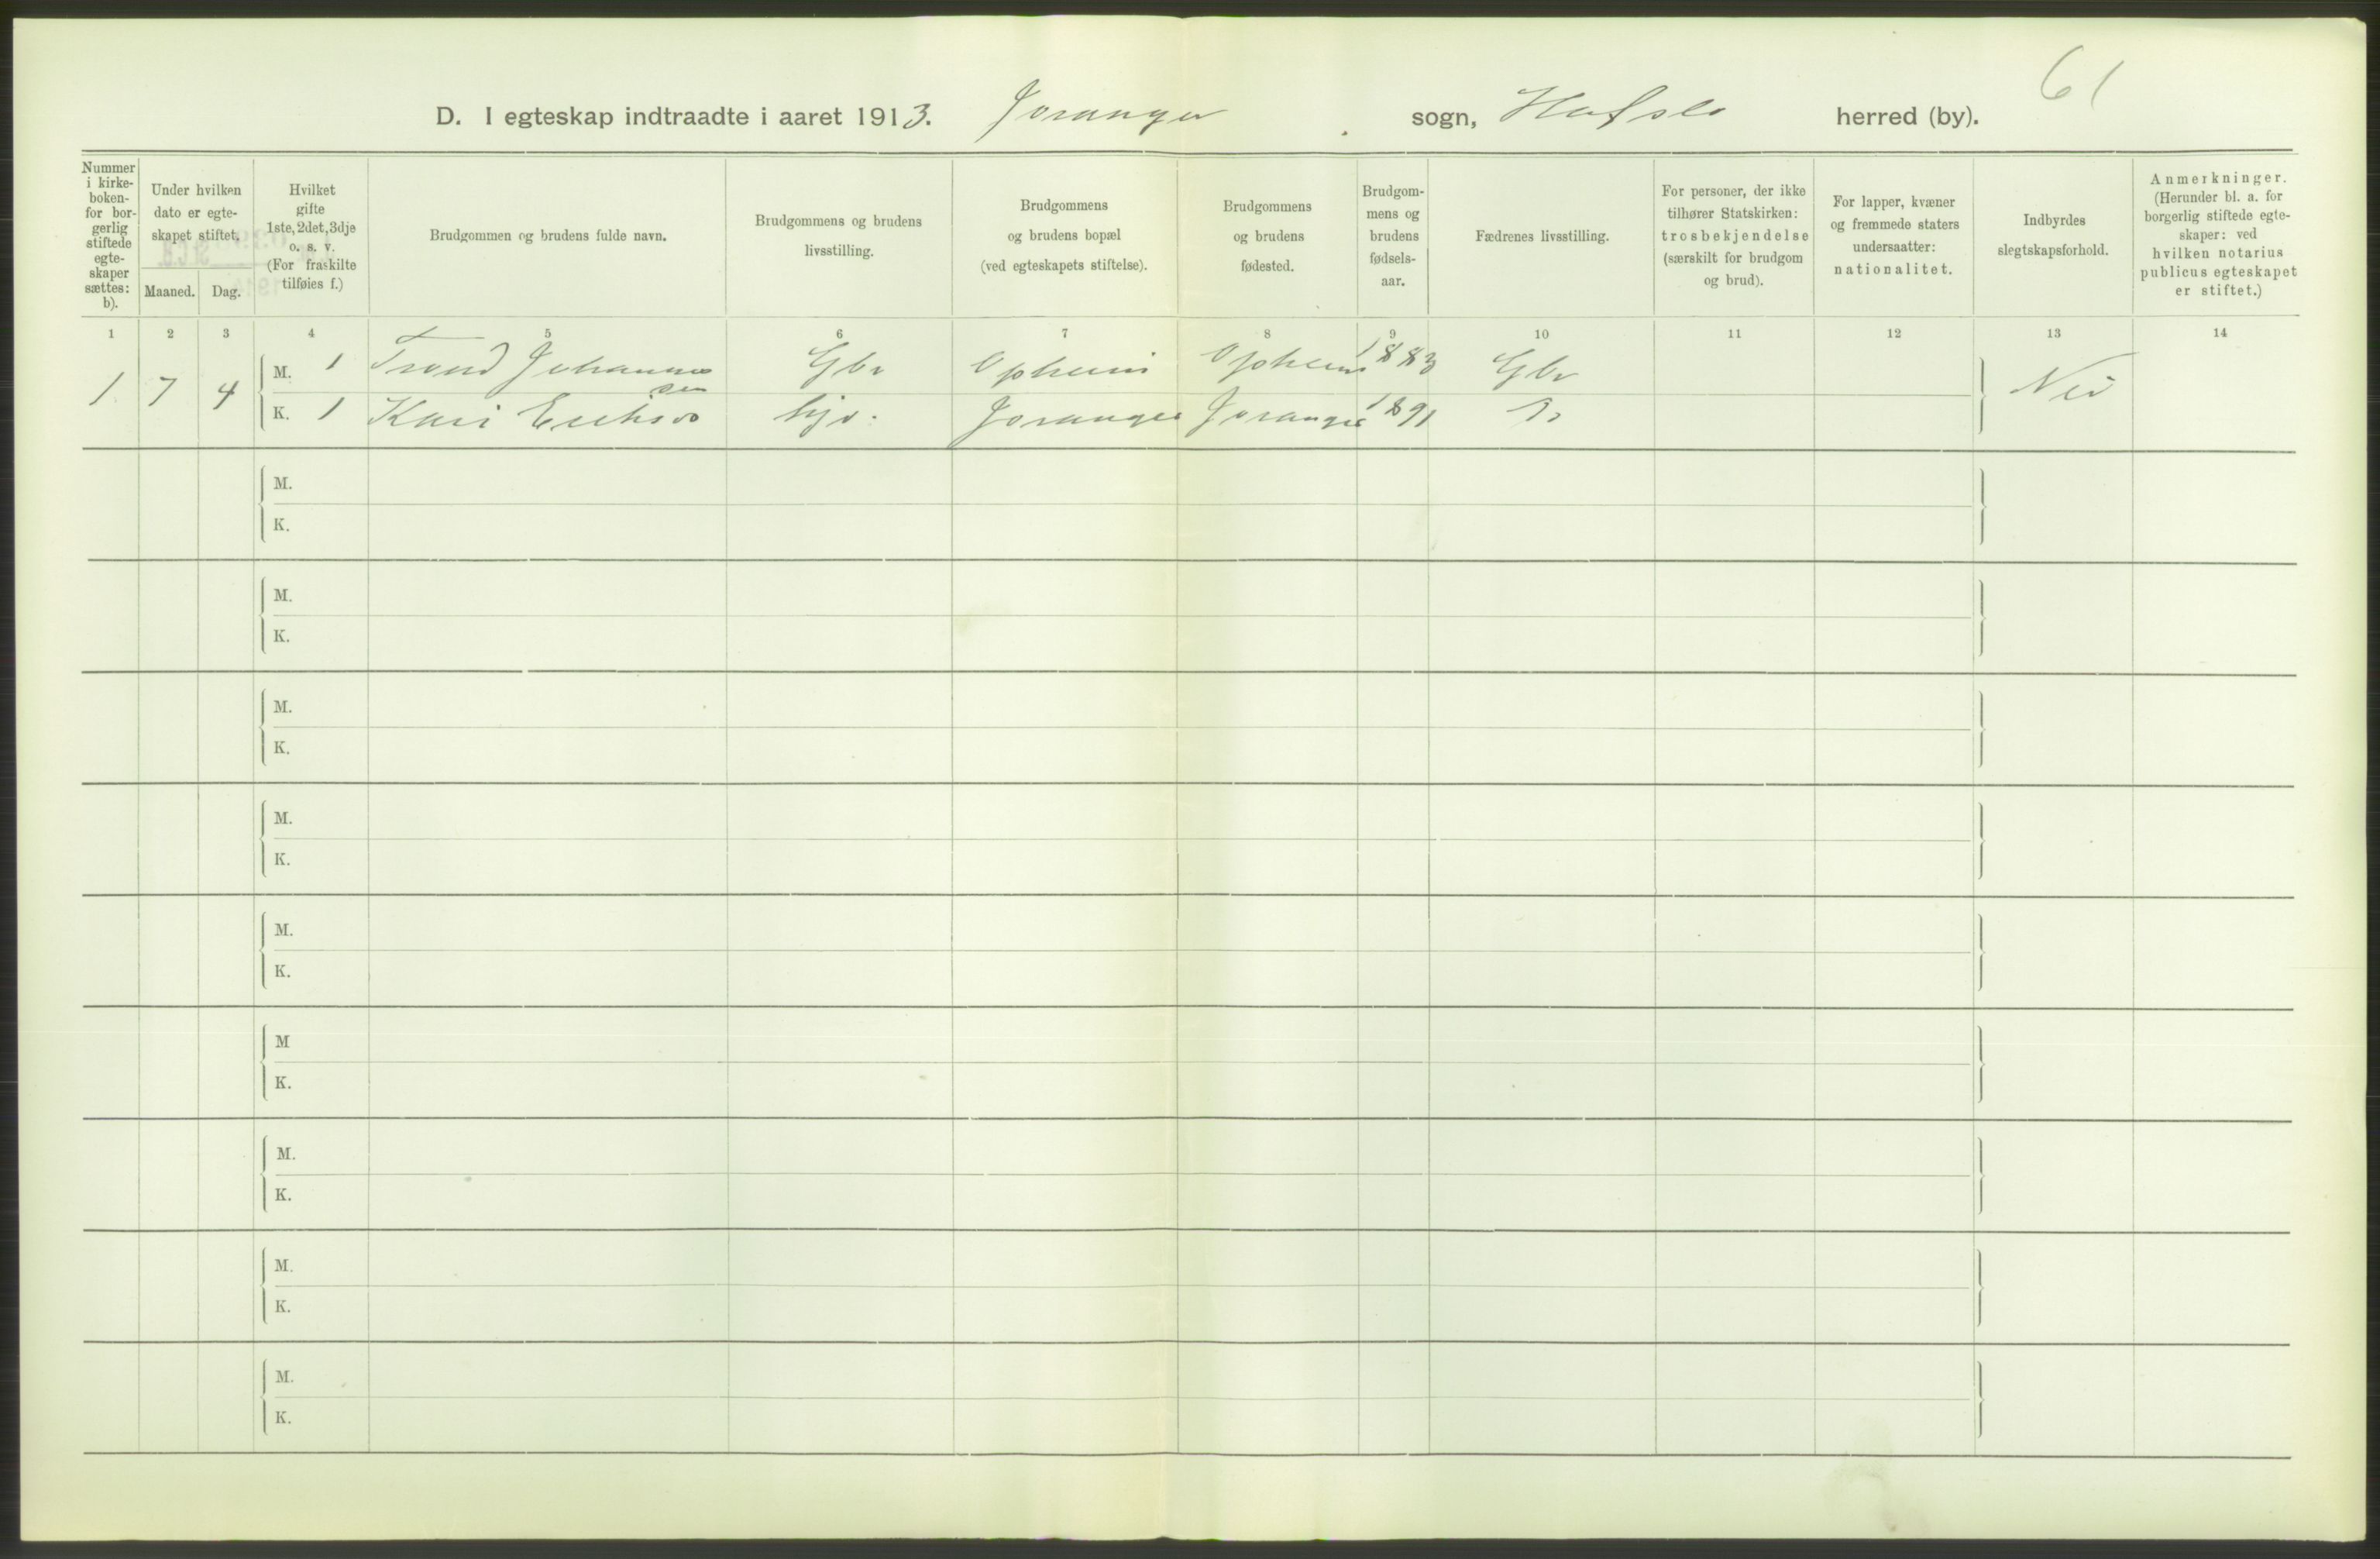 61
D. I egteskap indtraadte i aaret 1913. Joranger sogn, Hafslo herred (by).
Nummer
i kirke-
boken-
for bor-
gerlig
stiftede
egte-
skaper
sættes:
b).
Under hvilken
dato er egte-
skapet stiftet.
Maaned. Dag.
Hvilket
gifte
1ste, 2det, 3dje
o. s. v.
(For fraskilte
tilføies f.)
Brudgommen og brudens fulde navn.
Brudgommens og brudens
livsstilling.
Brudgommens
og brudens bopæl
(ved egteskapets stiftelse).
Brudgommens
og brudens
fødested.
Brudgom-
mens og
brudens
fødsels-
aar.
Fædrenes livsstilling.
For personer, der ikke
tilhører Statskirken:
trosbekjendelse
(særskilt for brudgom
og brud).
For lapper, kvæner
og fremmede staters
undersaatter:
nationalitet.
Indbyrdes
slegtskapsforhold.
Anmerkninger.
(Herunder bl. a. for
borgerlig stiftede egte-
skaper: ved
hvilken notarius
publicus egteskapet
er stiftet.)
1 2 3 4 5 6 7 8 9 10 11 12 13 14
1 7 4 M. 1 Trond Johannes Gbr Opheim Opheim 1883 Gbr Nei
sen
K. 1 Kari Eriksd Joranger Joranger 1891
M.
K.
M.
K.
M.
K.
M.
K.
M.
K.
M
K.
M.
K.
M.
K.
M.
K.